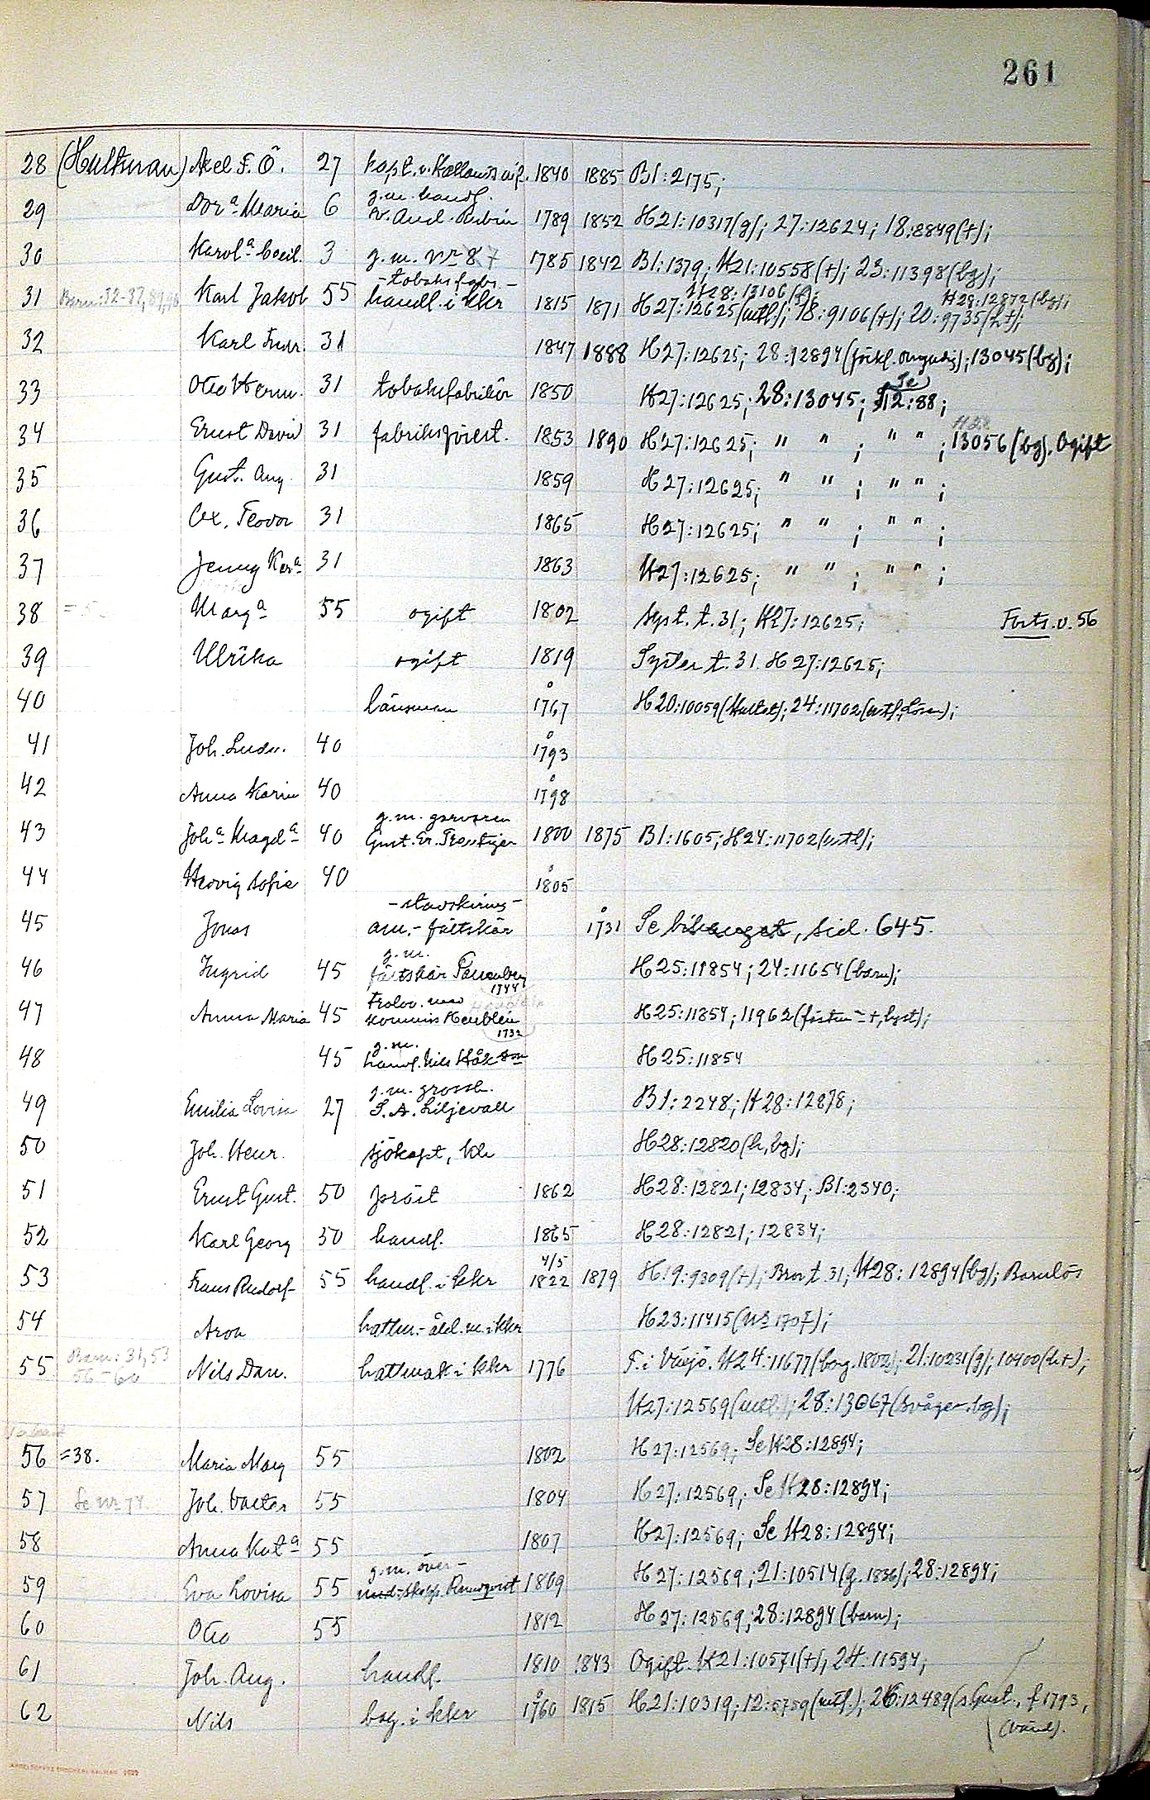 261
28 (Hultman) Axel F. O. 27 kapt. v. 1840 1885 Bl: 2175;
g.m. handl.
29 Dorª Maria 6 And. Rubin 1789 1852 H21:10317(g); 27:12624; 18:8849(+);
30 Karolª Cecil. 3 g.m. nr 87 1785 1842 Bl:1379; H21:10558(+); 23:11398(bg);
-tobaksfabr.- H28:13106(f); H28:12872(bg);
31 Barn: 32-37, Karl Jakob 55 handl. i Kkr 1815 1871 H27:12625(mtl); 18:9106(+); 20:9735(h+);
32 Karl Fredr. 31 1847 1888 H27:12625; 28:12894; 13045(bg);
Se
33 Otto Herm. 31 tobaksfabrikör 1850 H27:12625; 28:13045; 12:88;
H28
34 Ernst David 31 fabriksförest. 1853 1890 H27:12625; " " ; " " ; 13056(bg). Ogift
35 Gust. Aug. 31 1859 H27:12625; " " ; " " ;
36 Ax. Teodor 31 1865 H27:12625; " " ; " " ;
37 Jenny Karª 31 1863 H27:12625; " " ; " " ;
38 Margª 55 ogift 1802 Syst. t. 31; H27:12625; Forts. v. 56
39 Ulrika ogift 1819 Syster t. 31. H27:12625;
40 länsman 1767 H20:10059(Hultet); 24:11702
41 Joh. Ludv. 40 1793
42 Anna Karin 40 1798
g.m. garvaren
43 Johª Magdª 40 Gust. Er. 1800 1875 Bl:1605; H24:11702(mtl);
44 Hedvig Sofie 40 1805
45 Jonas am.-fältskär 1731 Se bihanget, sid. 645.
g.m.
46 Ingrid 45 fältskär Tanneberg H25:11854; 24:11654(barn);
1744
Trolov. med
47 Anna Maria 45 kommis Heublein H25:11854; 11962
1732
g.m.
48 45 handl. Nils H25:11854
g.m. grossh.
49 Emilia Lovisa 27 S.A. Liljevall Bl:2248; H28:12878;
50 Joh. Henr. sjökapt, H28:12820(h, bg);
51 Ernst Gust. 50 1862 H28:12821; 12834; Bl:2340;
52 Karl Georg 50 handl. 1865 H28:12821; 12834;
4/5
53 Frans Rudolf 55 handl. i Kkr 1822 1879 H19:9309(+); Bror t. 31; H28:12894(bg); Barnlös
54 Aron hattm.-åld.m. i Kkr H23:11415
Barn: 31, 53
55 56-60 Nils Dan. hattmak. i Kkr 1776 F. i Växjö. H24:11677(borg. 1802); 21:10231(g); 10400(h+);
H27:12569(mtl.); 28:13067(svåger, bg);
56 =38. Maria Marg 55 1802 H27:12569; Se H28:12894;
57 Se nr 74 Joh. Valter 55 1804 H27:12569; Se H28:12894;
58 Anna Katª 55 1807 H27:12569; Se H28:12894;
g.m. över-
59 Eva Lovisa 55 1809 H27:12569; 21:10514(g. 1836); 28:12894;
60 Otto 55 1812 H27:12569; 28:12894(barn);
61 Joh. Aug. handl. 1810 1843 Ogift. H21:10571(+); 24:11594;
62 Nils bag. i Kkr 1760 1815 H21:10319; 12:5759(mtl.); 26:12489(s. Gust., f 1793,